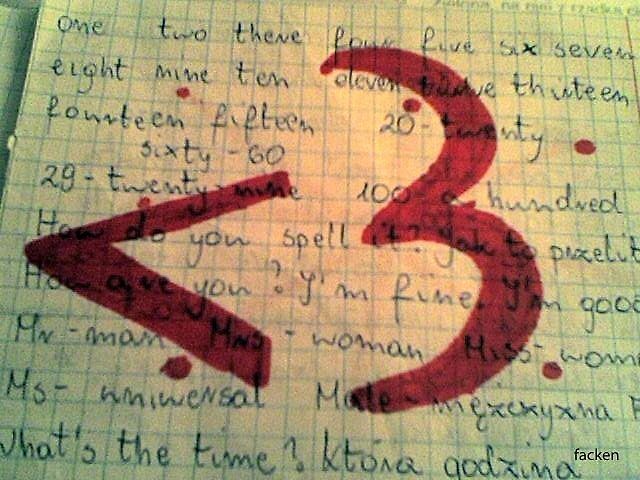 one two three four five six seven
eight nine ten eleven twelve thirteen
fourteen fifteen 20-twenty
sixty-60
29-twenty-nine 100-a hundred
How do you spell it? Jak to przelit
How are you? I'm fine. I'm good
Mr-man Mrs-woman Miss-wom
Ms-uniwersal Male-mężczyzna F
What's the time? która godzina
<3
facken